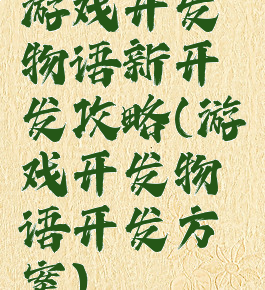 游戏开发
物语新开
发攻略(游
戏开发物
语开发方
案)